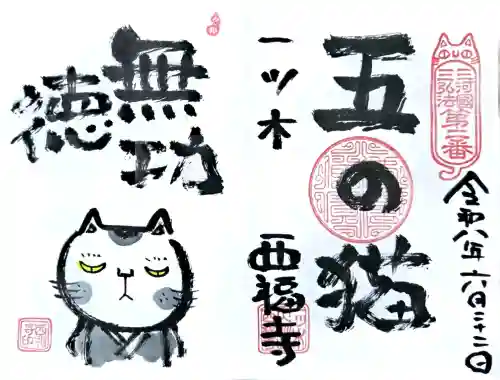 三河國
三弘法第二番
令和八年六月二十二日
五の猫
一ツ木
西福寺
無功
徳